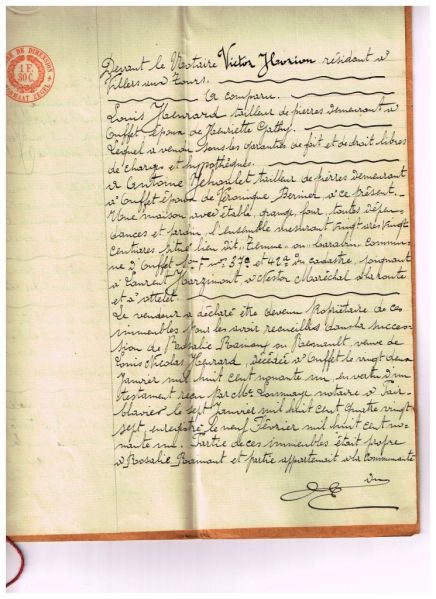 DE DIMENSION
1 F.
80 C.
Devant le Notaire Victor Havrion résidant à
Villers aux Tours.
A comparu.
Louis Henrard tailleur de pierres demeurant à
Ouffet époux de Henriette
Lequel a vendu sous les garanties de fait et de droit libres
de charges et hypothèques.
à Antoine tailleur de pierres demeurant
à Ouffet époux de Véronique Bernier, à ce présent.
Une maison avec étable, grange, four, toutes dépen-
dances et jardin, l'ensemble mesurant vingt ares vingt
centiares situé lieu dit, ou commu-
ne d'Ouffet Son F nos 37e et 42d du cadastre, joignant
à Laurent à Nestor Maréchal à la route
et à
Le vendeur a déclaré être devenu propriétaire de ces
immeubles pour les avoir recueillis dans la succes-
sion de Rosalie ou veuve de
Louis Nicolas Henrard, décédée à Ouffet le vingt deux
Janvier mil huit cent nonante un, en vertu d'un
testament reçu par Mr notaire à
le sept Janvier mil huit cent quatre vingt
sept, enregistré le neuf Février mil huit cent no-
nante un. Partie de ces immeubles était propre
à Rosalie et partie appartenait à la communauté